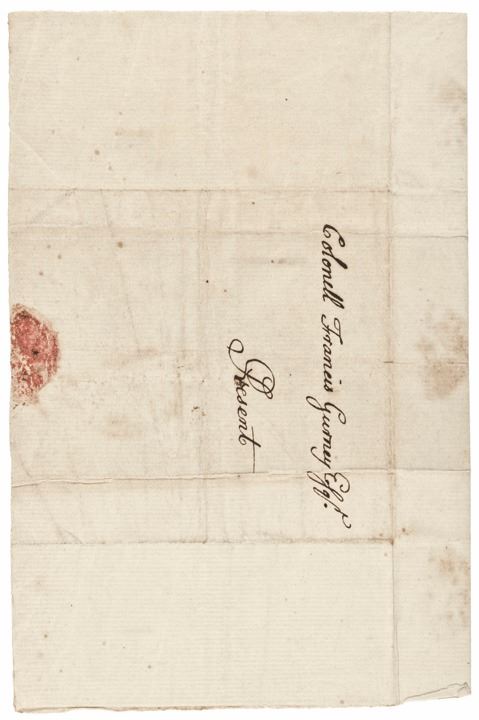 Colonell Francis Gurney Esqr.
Present